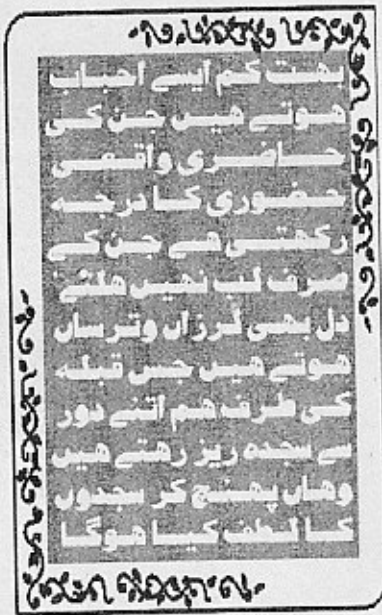 بہت کم ایسے احباب
ہوتے ہیں جن کی
حاضری واقعی
حضوری کا درجہ
رکھتی ہے جن کے
صرف لب نہیں ہلتے
دل بھی لرزاں وترساں
ہوتے ہیں جس قبلہ
کی طرف ہم اتنے دور
سے سجدہ ریز رہتے ہیں
وہاں پہنچ کر سجدوں
کا لطف کیسا ہوگا